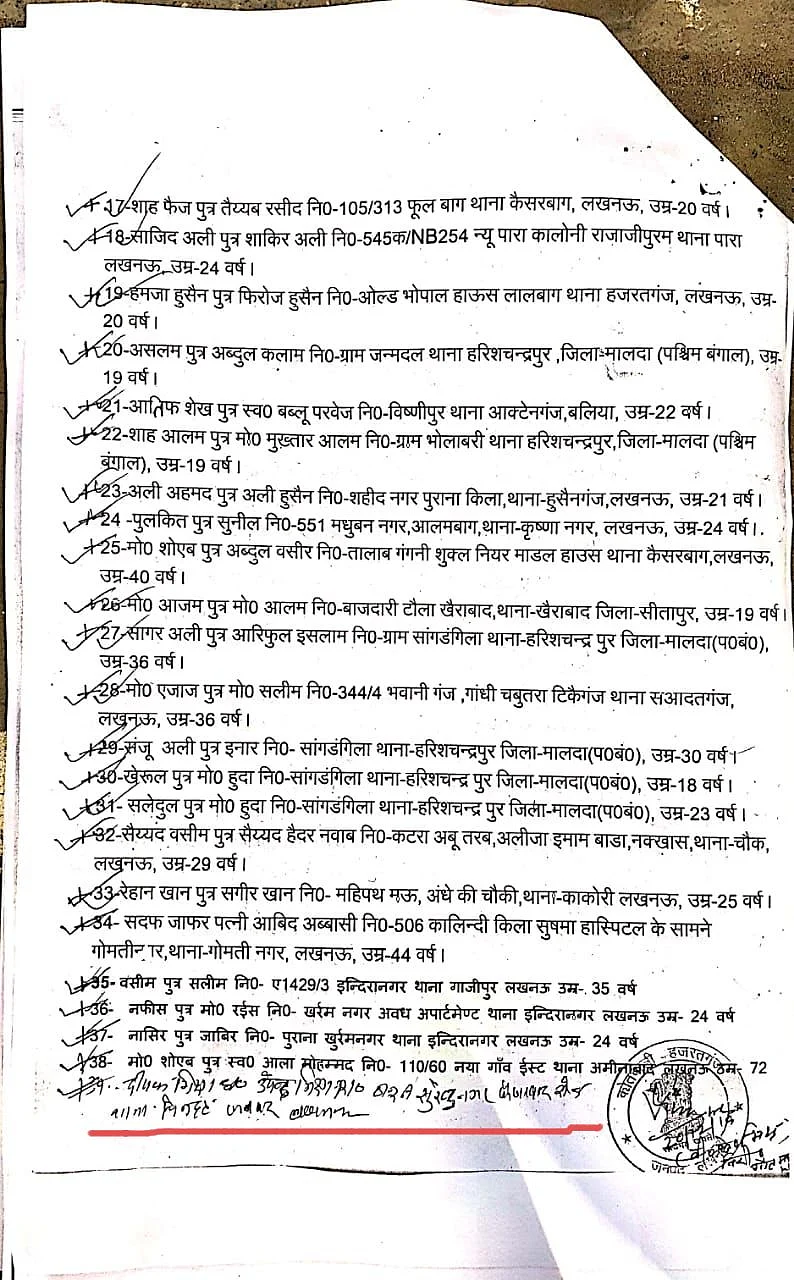 17-शाह फैज पुत्र तैय्यब रसीद नि0-105/313 फूल बाग थाना कैसरबाग, लखनऊ, उम्र-20 वर्ष।
18-साजिद अली पुत्र शाकिर अली नि0-545क/NB254 न्यू पारा कालोनी राजाजीपुरम थाना पारा
लखनऊ, उम्र-24 वर्ष।
19-हमजा हुसैन पुत्र फिरोज हुसैन नि0-ओल्ड भोपाल हाऊस लालबाग थाना हजरतगंज, लखनऊ, उम्र-
20 वर्ष।
20-असलम पुत्र अब्दुल कलाम नि0-ग्राम जन्मदल थाना हरिशचन्द्रपुर ,जिला-मालदा (पश्चिम बंगाल), उम्र-
19 वर्ष।
21-आतिफ शेख पुत्र स्व0 बब्लू परवेज नि0-विष्णीपुर थाना आक्टेनगंज,बलिया, उम्र-22 वर्ष।
22-शाह आलम पुत्र मो0 मुख़्तार आलम नि0-ग्राम भोलाबरी थाना हरिशचन्द्रपुर,जिला-मालदा (पश्चिम
बंगाल), उम्र-19 वर्ष।
23-अली अहमद पुत्र अली हुसैन नि0-शहीद नगर पुराना किला,थाना-हुसैनगंज,लखनऊ, उम्र-21 वर्ष।
24 -पुलकित पुत्र सुनील नि0-551 मधुबन नगर,आलमबाग,थाना-कृष्णा नगर, लखनऊ, उम्र-24 वर्ष।.
25-मो0 शोएब पुत्र अब्दुल वसीर नि0-तालाब गंगनी शुक्ल नियर माडल हाउस थाना कैसरबाग,लखनऊ,
उम्र-40 वर्ष।
26-मो0 आजम पुत्र मो0 आलम नि0-बाजदारी टौला खैराबाद,थाना-खैराबाद जिला-सीतापुर, उम्र-19 वर्ष।
27-सागर अली पुत्र आरिफुल इसलाम नि0-ग्राम सांगडंगिला थाना-हरिशचन्द्र पुर जिला-मालदा(प0बं0),
उम्र-36 वर्ष।
28-मो0 एजाज पुत्र मो0 सलीम नि0-344/4 भवानी गंज ,गांधी चबुतरा टिकैगंज थाना सआदतगंज,
लखनऊ, उम्र-36 वर्ष।
29-संजू अली पुत्र इनार नि0- सांगडंगिला थाना-हरिशचन्द्रपुर जिला-मालदा(प0बं0), उम्र-30 वर्ष।
30-खेरूल पुत्र मो0 हुदा नि0-सांगडंगिला थाना-हरिशचन्द्र पुर जिला-मालदा(प0बं0), उम्र-18 वर्ष।
31- सलेदुल पुत्र मो0 हुदा नि0-सांगडंगिला थाना-हरिशचन्द्र पुर जिला-मालदा(प0बं0), उम्र-23 वर्ष।
32-सैय्यद वसीम पुत्र सैय्यद हैदर नवाब नि0-कटरा अबू तरब,अलीजा इमाम बाडा,नक्खास,थाना-चौक,
लखनऊ, उम्र-29 वर्ष।
33-रेहान खान पुत्र सगीर खान नि0- महिपथ मऊ, अंधे की चौकी,थाना-काकोरी लखनऊ, उम्र-25 वर्ष।
34- सदफ जाफर पत्नी आबिद अब्बासी नि0-506 कालिन्दी किला सुषमा हास्पिटल के सामने
गोमतीनगर,थाना-गोमती नगर, लखनऊ, उम्र-44 वर्ष।
35- वसीम पुत्र सलीम नि0- ए1429/3 इन्दिरानगर थाना गाजीपुर लखनऊ उम्र-. 35 वर्ष
36- नफीस पुत्र मो0 रईस नि0- खर्रम नगर अवध अपार्टमेण्ट थाना इन्दिरानगर लखनऊ उम्र- 24 वर्ष
37- नासिर पुत्र जाबिर नि0- पुराना खुर्रमनगर थाना इन्दिरानगर लखनऊ उम्र- 24 वर्ष
38- मो0 शोएब पुत्र स्व0 आला मोहम्मद नि0- 110/60 नया गाँव ईस्ट थाना अमीनाबाद लखनऊ उम्र- 72
39- दीपक
लखनऊ
कोतवाली - हजरतगंज
जनपद